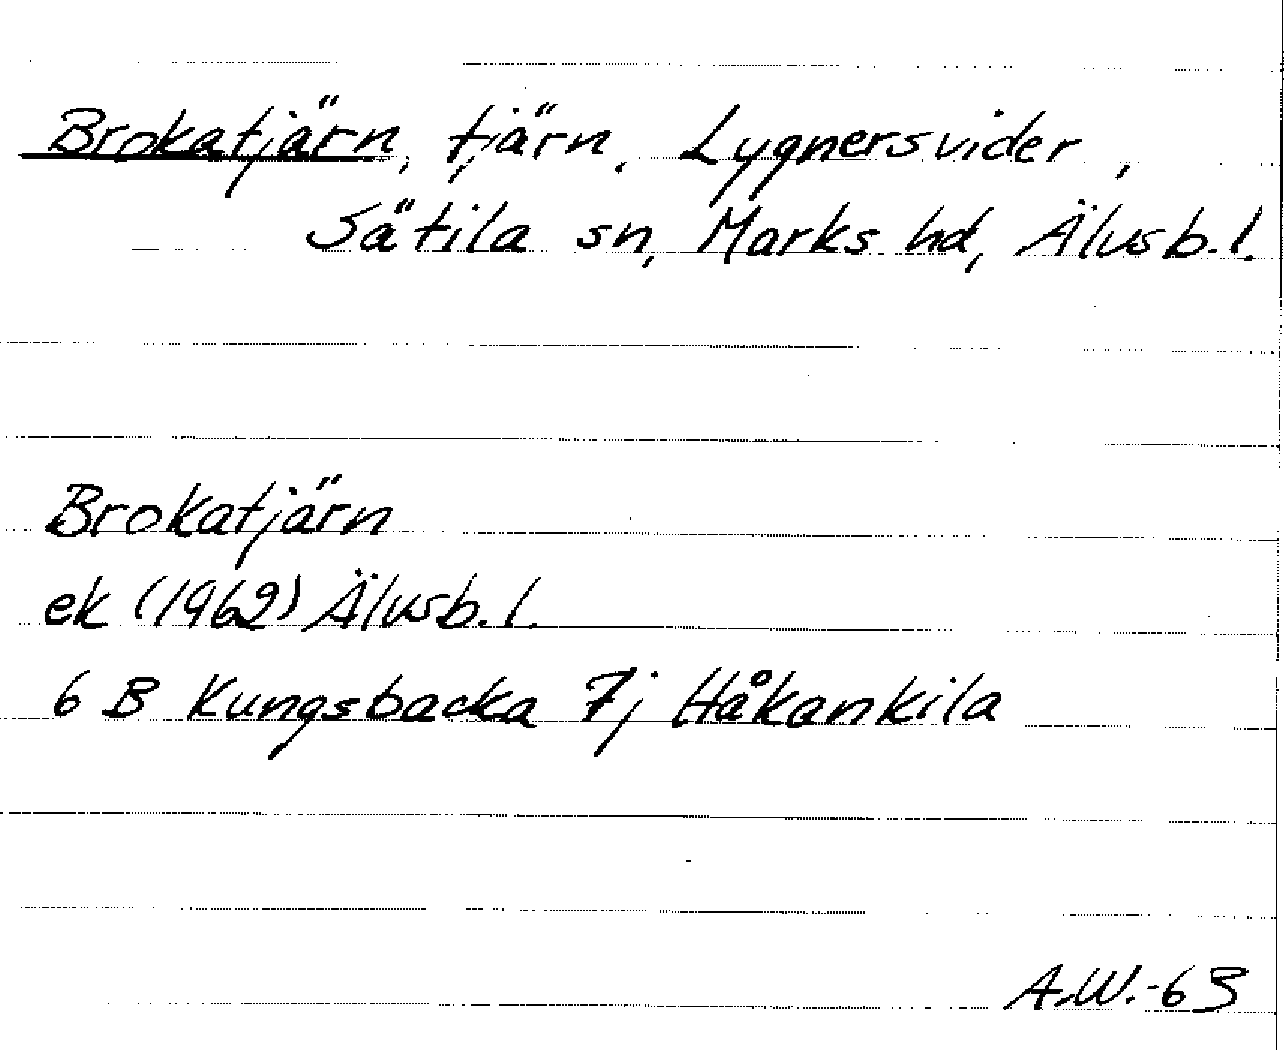 Brokatjärn, tjärn, Lygnersvider,
Sätila sn, Marks hd, Älvsb.l.
Brokatjärn
ek (1962) Älvsb.l.
6 B Kungsbacka 7j Håkankila
A.W.-63